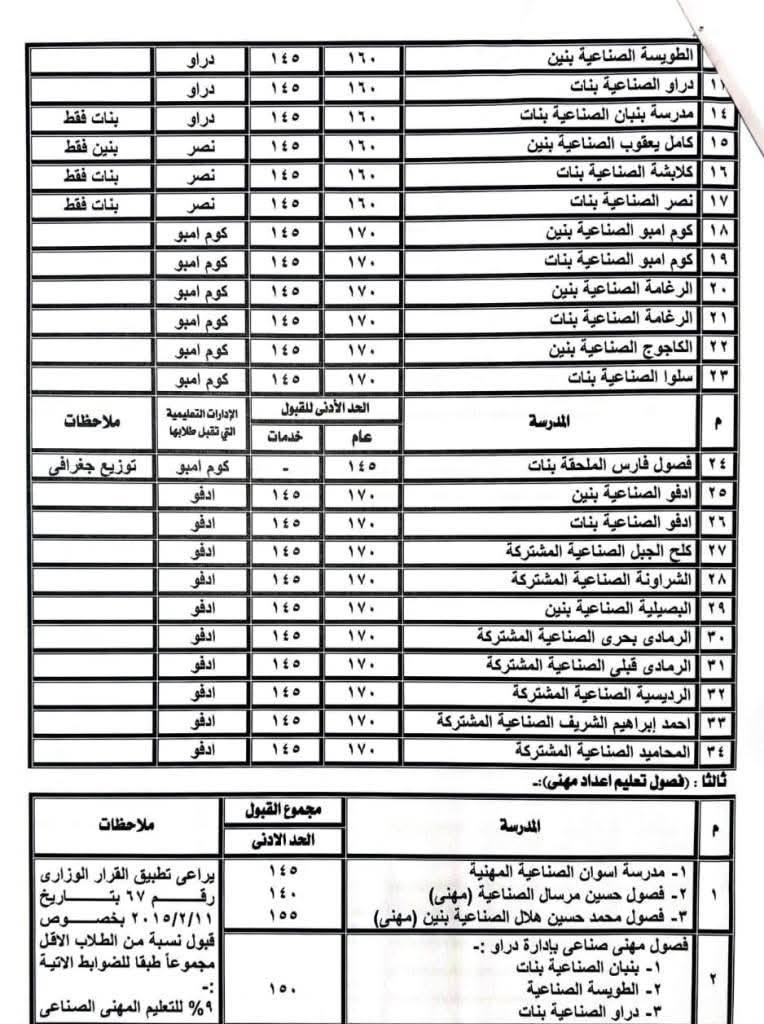 الطويسة الصناعية بنين ١٦٠ ١٤٥ دراو
دراو الصناعية بنات ١٦٠ ١٤٥ دراو
١٤ مدرسة بنبان الصناعية بنات ١٦٠ ١٤٥ دراو بنات فقط
١٥ كامل يعقوب الصناعية بنين ١٦٠ ١٤٥ نصر بنين فقط
١٦ كلابشة الصناعية بنات ١٦٠ ١٤٥ نصر بنات فقط
١٧ نصر الصناعية بنات ١٦٠ ١٤٥ نصر بنات فقط
١٨ كوم امبو الصناعية بنين ١٧٠ ١٤٥ كوم امبو
١٩ كوم امبو الصناعية بنات ١٧٠ ١٤٥ كوم امبو
٢٠ الرغامة الصناعية بنين ١٧٠ ١٤٥ كوم امبو
٢١ الرغامة الصناعية بنات ١٧٠ ١٤٥ كوم امبو
٢٢ الكاجوج الصناعية بنين ١٧٠ ١٤٥ كوم امبو
٢٣ سلوا الصناعية بنات ١٧٠ ١٤٥ كوم امبو
م المدرسة الحد الأدنى للقبول الإدارات التعليمية التى تقبل طلابها ملاحظات
عام خدمات
٢٤ فصول فارس الملحقة بنات ١٤٥ - كوم امبو توزيع جغرافى
٢٥ ادفو الصناعية بنين ١٧٠ ١٤٥ ادفو
٢٦ ادفو الصناعية بنات ١٧٠ ١٤٥ ادفو
٢٧ كلح الجبل الصناعية المشتركة ١٧٠ ١٤٥ ادفو
٢٨ الشراونة الصناعية المشتركة ١٧٠ ١٤٥ ادفو
٢٩ البصيلية الصناعية بنين ١٧٠ ١٤٥ ادفو
٣٠ الرمادى بحرى الصناعية المشتركة ١٧٠ ١٤٥ ادفو
٣١ الرمادى قبلى الصناعية المشتركة ١٧٠ ١٤٥ ادفو
٣٢ الرديسية الصناعية المشتركة ١٧٠ ١٤٥ ادفو
٣٣ احمد إبراهيم الشريف الصناعية المشتركة ١٧٠ ١٤٥ ادفو
٣٤ المحاميد الصناعية المشتركة ١٧٠ ١٤٥ ادفو
ثالثا : (فصول تعليم اعداد مهنى):-
م المدرسة مجموع القبول ملاحظات
الحد الادنى
١ ١- مدرسة اسوان الصناعية المهنية ١٤٥
٢- فصول حسين مرسال الصناعية (مهنى) ١٤٠
٣- فصول محمد حسين هلال الصناعية بنين (مهنى) ١٥٥
٢ فصول مهنى صناعى بإدارة دراو :-
١- بنبان الصناعية بنات
٢- الطويسة الصناعية ١٥٠
٣- دراو الصناعية بنات
يراعى تطبيق القرار الوزارى
رقم ٦٧ بتاريخ
٢٠١٥/٢/١١ بخصوص
قبول نسبة من الطلاب الاقل
مجموعاً طبقا للضوابط الاتية
:-
٩% للتعليم المهنى الصناعى